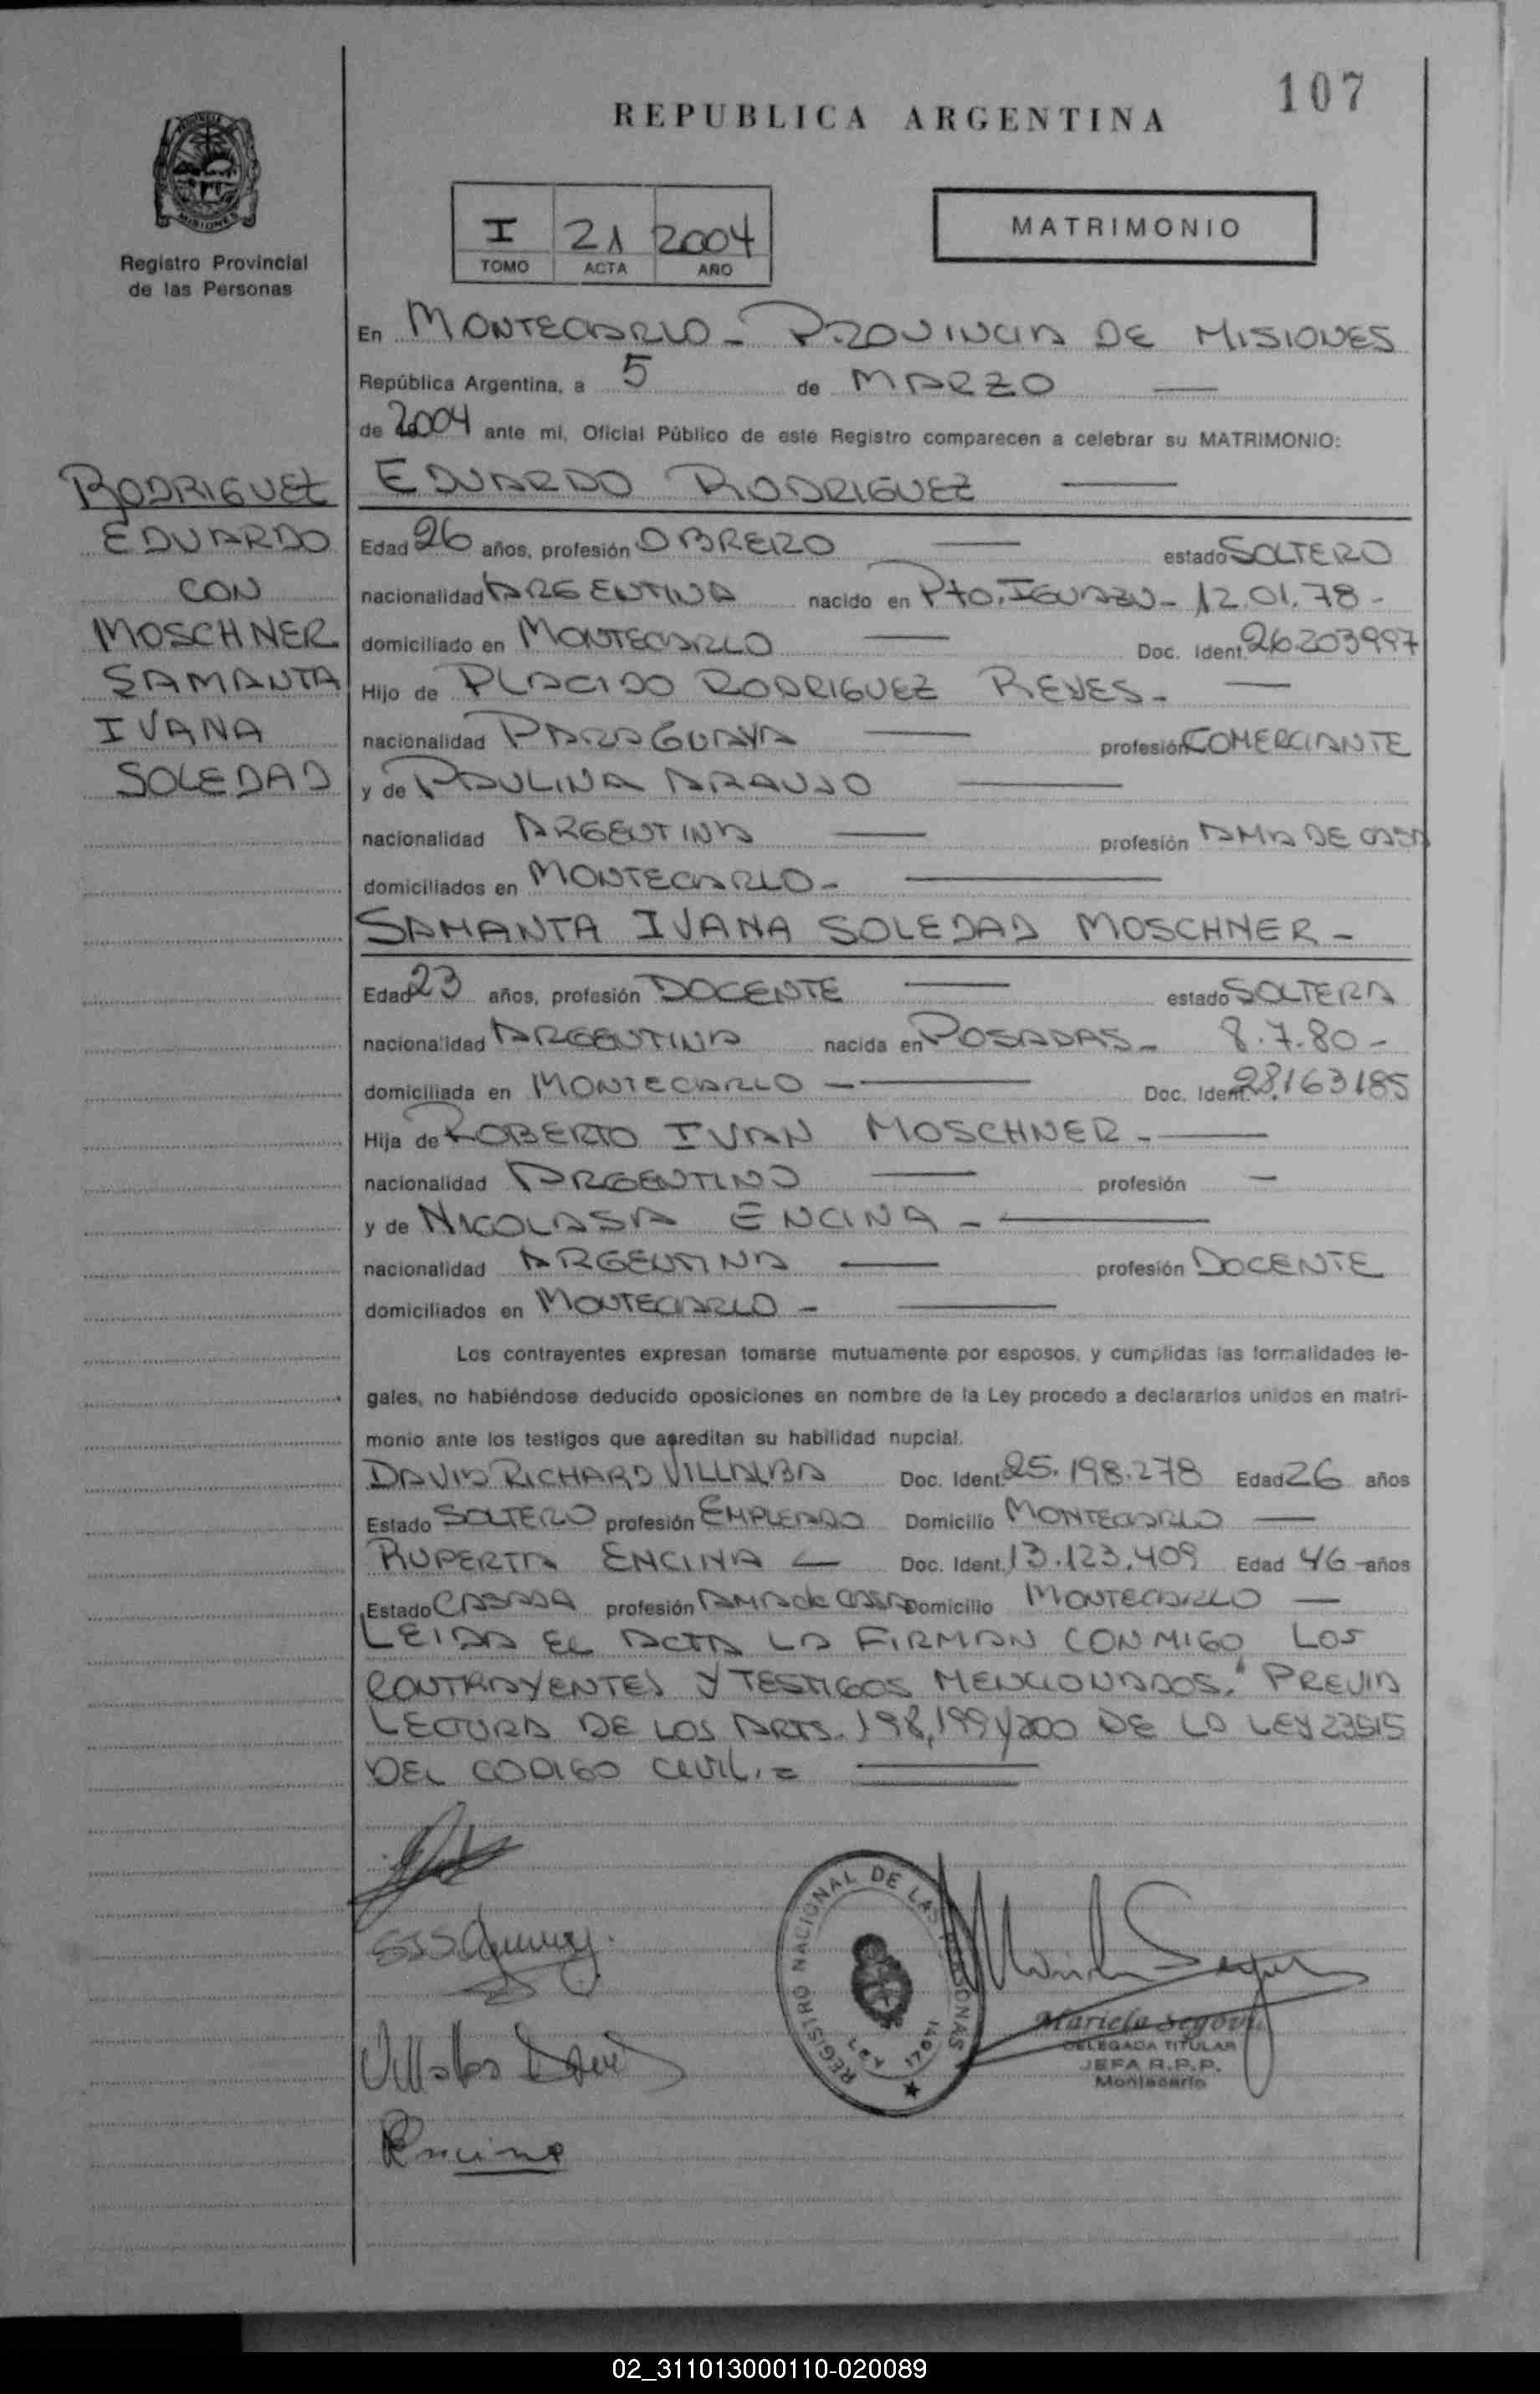 107
REPUBLICA ARGENTINA
I 21 2004
TOMO ACTA AÑO
MATRIMONIO
PROVINCIA MISIONES
Registro Provincial
de las Personas
RODRIGUEZ
EDUARDO
CON
MOSCHNER
SAMANTA
IVANA
SOLEDAD
En MONTECARLO - PROVINCIA DE MISIONES
República Argentina, a 5 de MARZO
de 2004 ante mi, Oficial Público de este Registro comparecen a celebrar su MATRIMONIO:
EDUARDO RODRIGUEZ
Edad 26 años, profesión OBRERO estado SOLTERO
nacionalidad ARGENTINA nacido en Pto. IGUAZU - 12.01.78 -
domiciliado en MONTECARLO Doc. Ident. 26.203997
Hijo de PLACIDO RODRIGUEZ REYES -
nacionalidad PARAGUAYA profesión COMERCIANTE
y de PAULINA ARAUJO
nacionalidad ARGENTINA profesión AMA DE CASA
domiciliados en MONTECARLO -
SAMANTA IVANA SOLEDAD MOSCHNER -
Edad 23 años, profesión DOCENTE estado SOLTERA
nacionalidad ARGENTINA nacida en POSADAS - 8.7.80 -
domiciliada en MONTECARLO - Doc. Ident. 28.163185
Hija de ROBERTO IVAN MOSCHNER -
nacionalidad ARGENTINO profesión —
y de NICOLASA ENCINA -
nacionalidad ARGENTINA profesión DOCENTE
domiciliados en MONTECARLO -
Los contrayentes expresan tomarse mutuamente por esposos, y cumplidas las formalidades le-
gales, no habiéndose deducido oposiciones en nombre de la Ley procedo a declararlos unidos en matri-
monio ante los testigos que acreditan su habilidad nupcial.
DAVID RICHARD VILLALBA Doc. Ident. 25.198.278 Edad 26 años
Estado SOLTERO profesión EMPLEADO Domicilio MONTECARLO
RUPERTA ENCINA Doc. Ident. 13.123.409 Edad 46 años
Estado CASADA profesión AMA de CASA Domicilio MONTECARLO
LEIDA EL ACTA LA FIRMAN CONMIGO LOS
CONTRAYENTES Y TESTIGOS MENCIONADOS." PREVIA
LECTURA DE LOS ARTS. 198, 199 y 200 DE LA LEY 23515
DEL CODIGO CIVIL. =
REGISTRO NACIONAL DE LAS PERSONAS
Villalba David
Encina
Mariela Segovia
DELEGADA TITULAR
JEFA R.P.P.
Montecarlo
02_311013000110-020089